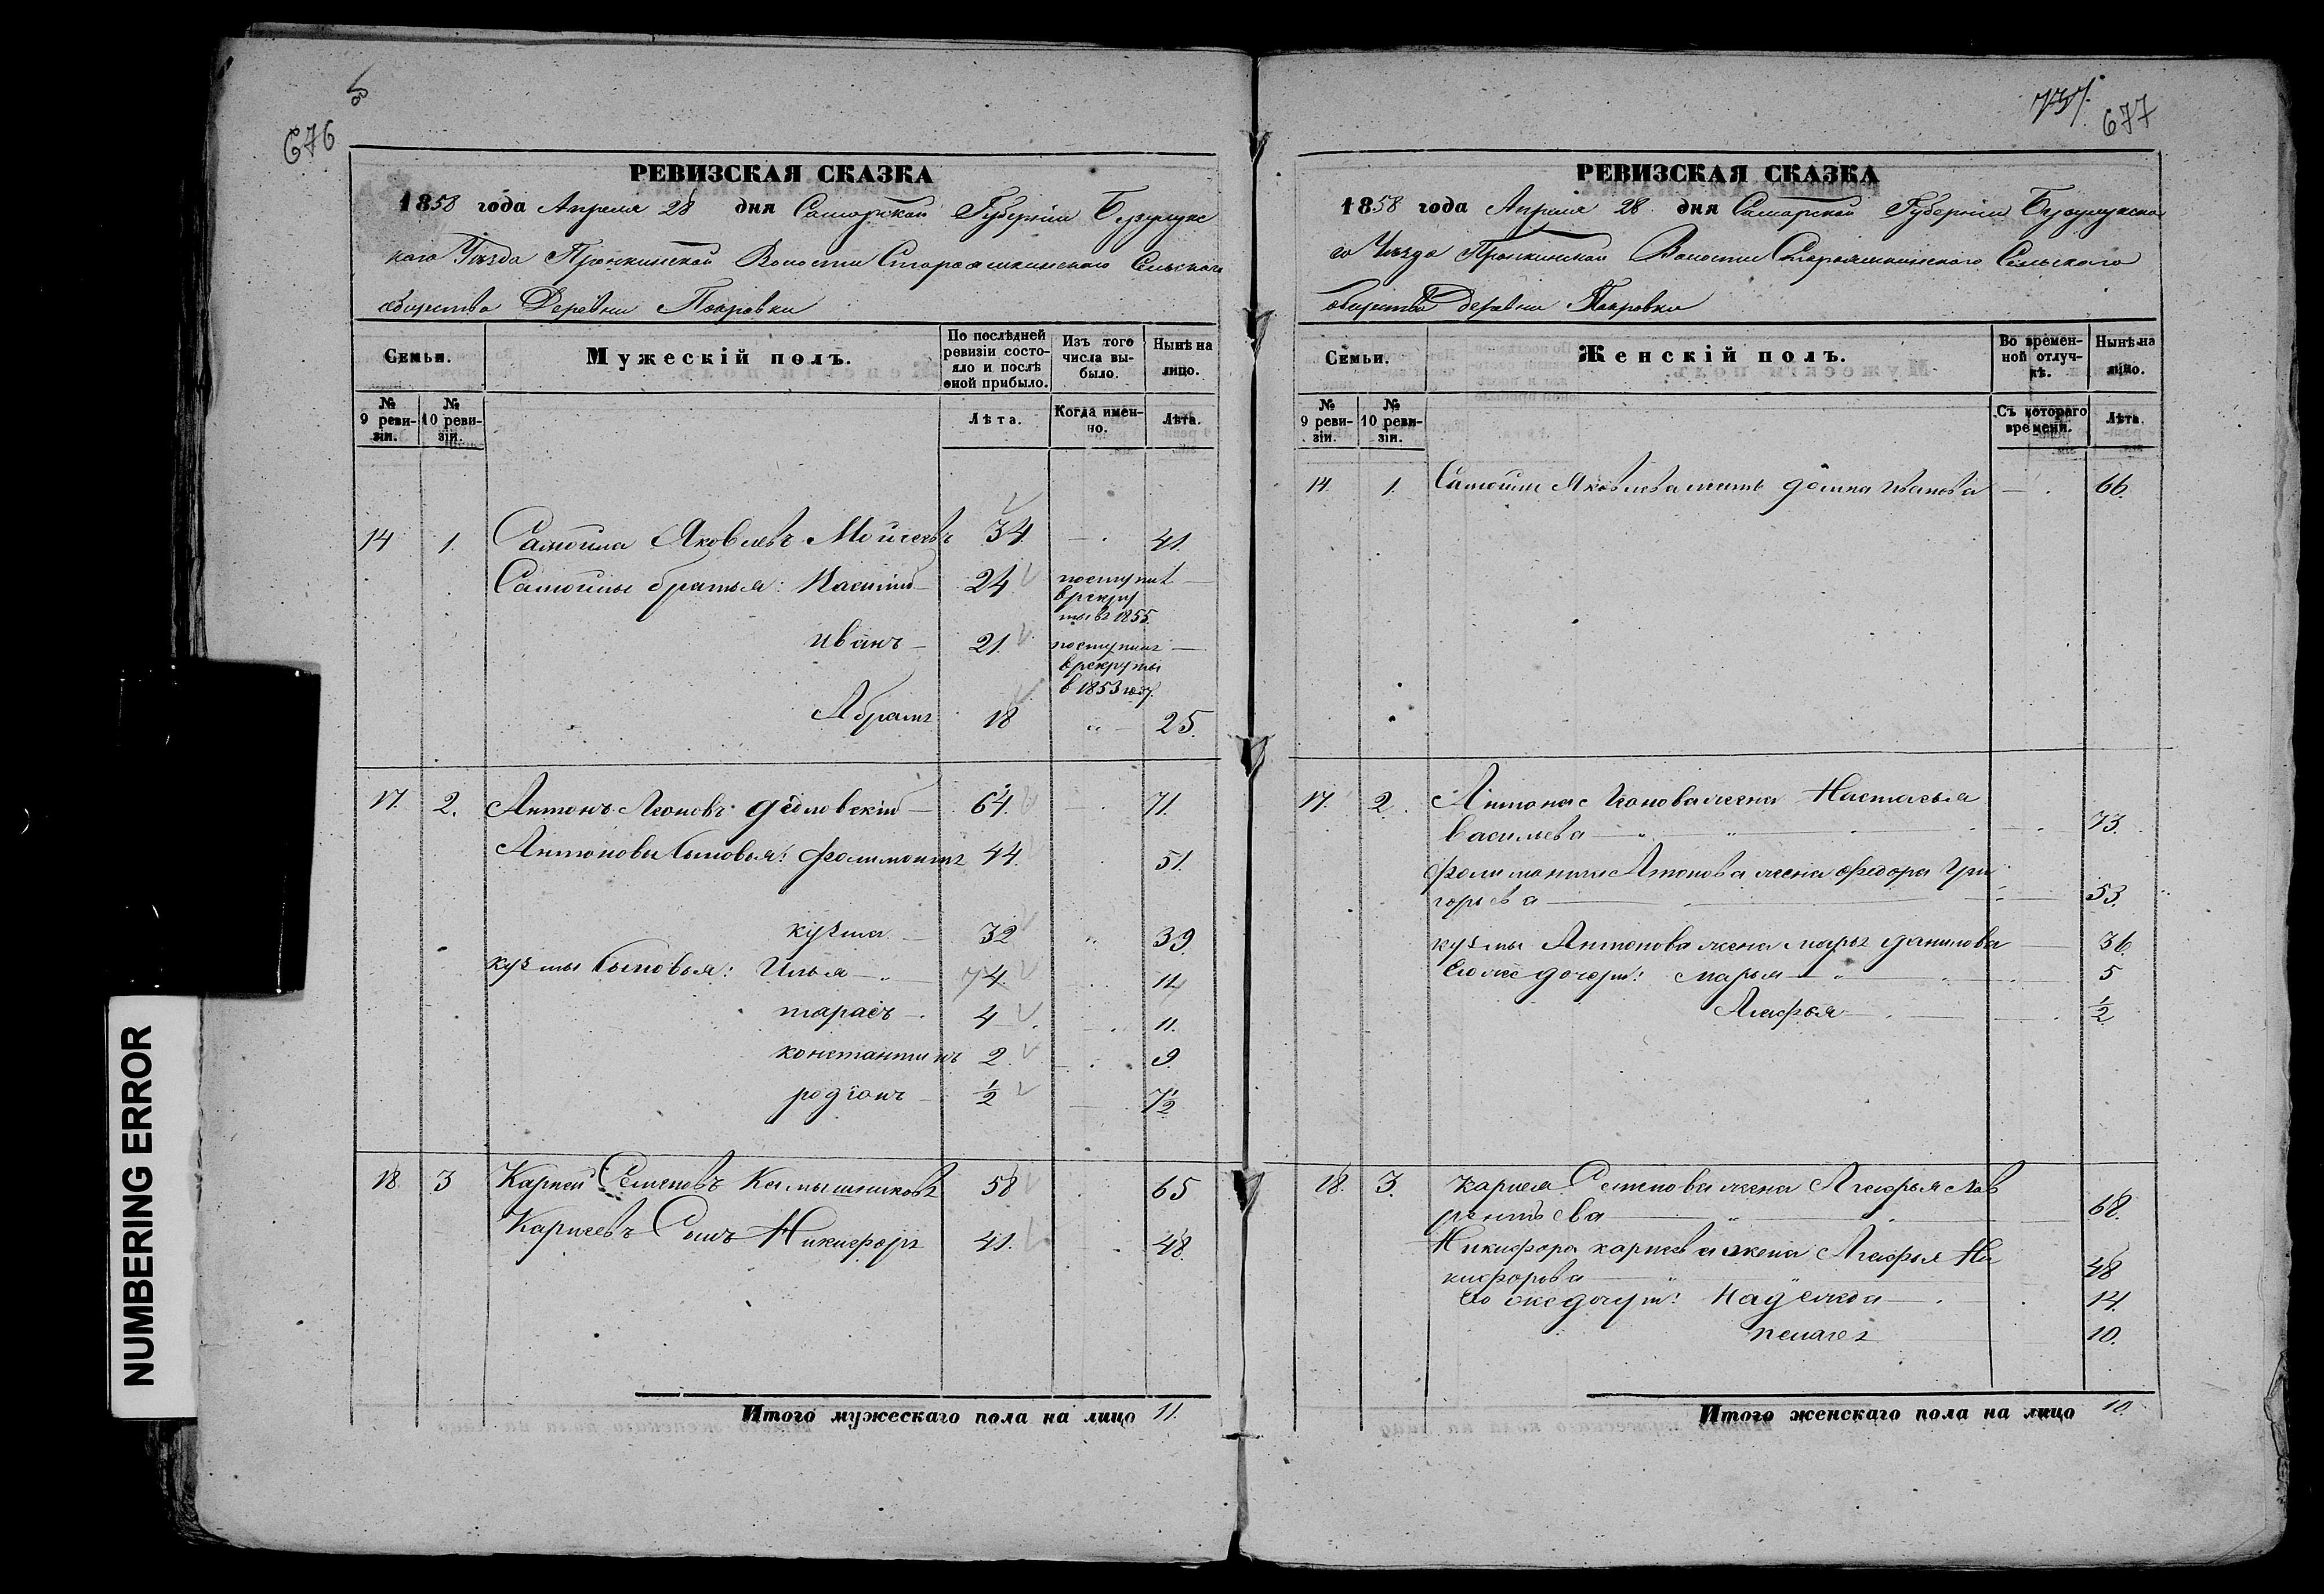 676
РЕВИЗСКАЯ СКАЗКА
1858 года Апреля 28 дня Самарской Губернiи Бузулукс
каго Уезда Пронкинской Волости Старояшкинскаго Сельскаго
общества Деревни Покровки
Семьи.
Мужескiй полъ.
По послѣдней ревизiи состояло и послѣ оной прибыло.
Изъ того числа выбыло.
Нынѣ на лицо.
№ 9 ревизiи.
№ 10 ревизiи.
Лѣта.
Когда именно.
Лѣта.
14 1. Самойла Яковлевъ Моисеевъ 34 41.
Самойлы братья: 24 поступил
в рекру
ты въ 1855
иванъ 21. поступилъ
в рекруты
в 1853 году.
Абрамъ 18 " 25.
17. 2. Антонъ Леоновъ 64. 71.
Антоновы сыновья: Фолимонъ 44. 51.
кузма 32 " 39.
кузмы сыновья: Илья 4. 11
тарасъ 4 11.
константинъ 2. 9.
родiонъ ½ 7½
18. 3 Карпей Семеновъ Камышниковъ 58 65
Карпеевъ Сынъ Никифоръ 41. 48.
Итого мужескаго пола на лицо 11.
737. 677
РЕВИЗСКАЯ СКАЗКА
1858 года Апреля 28 дня Самарской Губернiи Бузулукска
го Уезда Пронкинской Волости Старояшкинскаго Сельскаго
общества Деревни Покровки
Семьи.
Женскiй полъ.
Во временной отлучкѣ.
Нынѣ на лицо.
№ 9 ревизiи.
№ 10 ревизiи.
Съ котораго времени.
Лѣта.
14. 1. Самойлы Яковлева мать домна иванова 66.
17. 2. Антона Леонова жена Настасья
Васильева 73.
Фолимона Антонова жена федора Гри
горьева 53.
кузмы Антонова жена марья данилова 36.
Его же дочери: марья 5
Агафья ½
18. 3. Карпея Семенова жена Агафья Лав
рентьева 68.
Никифора карпеева жена Агафья Ни
кифорова 48
Его же дочери: Надежда 14.
пелагея 10.
Итого женскаго пола на лицо 10.
NUMBERING ERROR